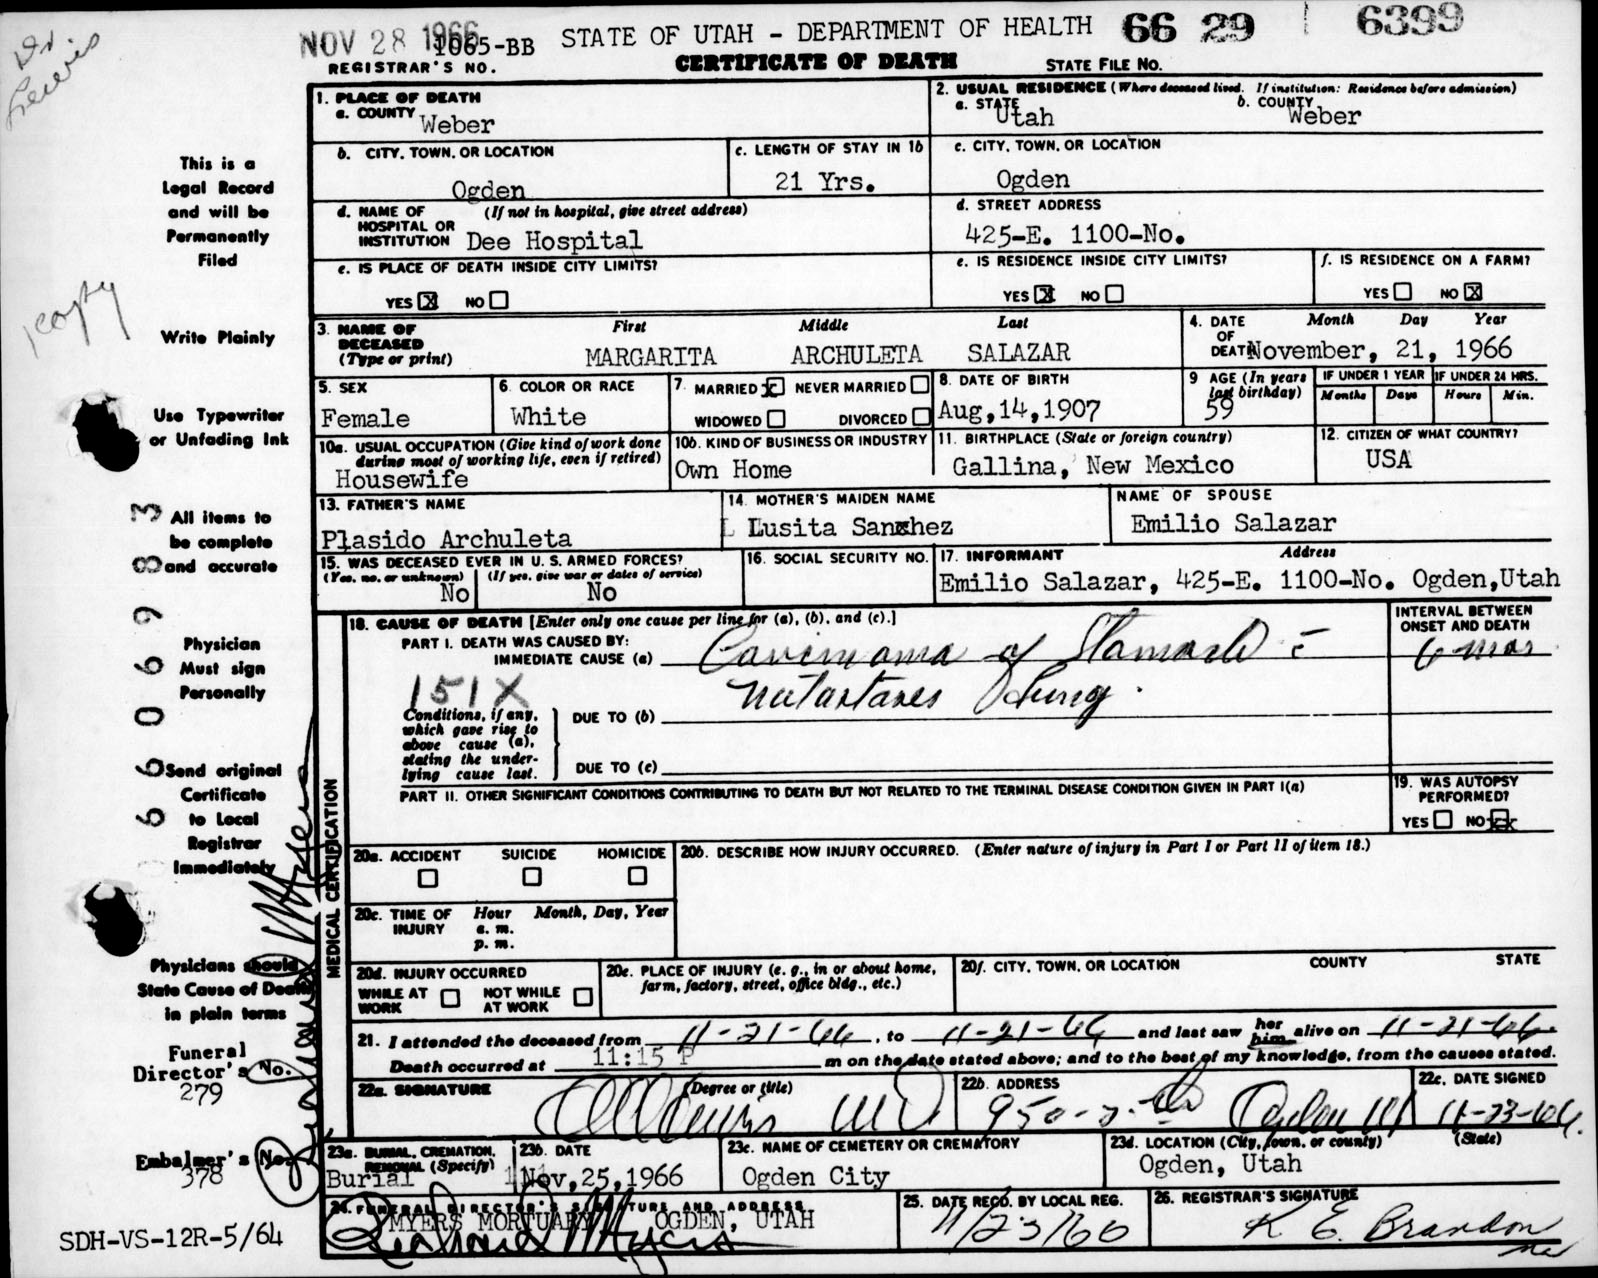 Dr Lewis
NOV 28 1966
1065-BB
REGISTRAR'S NO.
STATE OF UTAH - DEPARTMENT OF HEALTH 66 29 6399
CERTIFICATE OF DEATH
STATE FILE NO.
This is a
Legal Record
and will be
Permanently
Filed
copy
Write Plainly
Use Typewriter
or Unfading Ink
All items to
be complete
and accurate
Physician
Must sign
Personally
Send original
Certificate
to Local
Registrar
Immediately
Physicians should
State Cause of Death
in plain terms
Funeral
Director's No.
279
Embalmer's No.
378
SDH-VS-12R-5/64
6 6 0 6 9 8 3
1. PLACE OF DEATH
a. COUNTY Weber
2. USUAL RESIDENCE (Where deceased lived. If institution: Residence before admission)
a. STATE Utah b. COUNTY Weber
b. CITY, TOWN, OR LOCATION
Ogden
c. LENGTH OF STAY IN 1b
21 Yrs.
c. CITY, TOWN, OR LOCATION
Ogden
d. NAME OF HOSPITAL OR INSTITUTION (If not in hospital, give street address)
Dee Hospital
d. STREET ADDRESS
425-E. 1100-No.
e. IS PLACE OF DEATH INSIDE CITY LIMITS?
YES X NO
e. IS RESIDENCE INSIDE CITY LIMITS?
YES X NO
f. IS RESIDENCE ON A FARM?
YES NO X
3. NAME OF DECEASED (Type or print)
First Middle Last
MARGARITA ARCHULETA SALAZAR
4. DATE OF DEATH Month Day Year
November, 21, 1966
5. SEX
Female
6. COLOR OR RACE
White
7. MARRIED X NEVER MARRIED
WIDOWED DIVORCED
8. DATE OF BIRTH
Aug,14,1907
9 AGE (In years last birthday)
59
IF UNDER 1 YEAR IF UNDER 24 HRS.
Months Days Hours Min.
10a. USUAL OCCUPATION (Give kind of work done during most of working life, even if retired)
Housewife
10b. KIND OF BUSINESS OR INDUSTRY
Own Home
11. BIRTHPLACE (State or foreign country)
Gallina, New Mexico
12. CITIZEN OF WHAT COUNTRY?
USA
13. FATHER'S NAME
Plasido Archuleta
14. MOTHER'S MAIDEN NAME
Lusita Sanchez
NAME OF SPOUSE
Emilio Salazar
15. WAS DECEASED EVER IN U. S. ARMED FORCES?
(Yes, no, or unknown) (If yes, give war or dates of service)
No No
16. SOCIAL SECURITY NO.
17. INFORMANT Address
Emilio Salazar, 425-E. 1100-No. Ogden,Utah
MEDICAL CERTIFICATION
18. CAUSE OF DEATH [Enter only one cause per line for (a), (b), and (c).]
INTERVAL BETWEEN ONSET AND DEATH
PART I. DEATH WAS CAUSED BY:
IMMEDIATE CAUSE (a) Carcinoma of Stomach c̄ 6 mos
151X
metastases Lung.
Conditions, if any, which gave rise to above cause (a), stating the underlying cause last.
DUE TO (b)
DUE TO (c)
PART II. OTHER SIGNIFICANT CONDITIONS CONTRIBUTING TO DEATH BUT NOT RELATED TO THE TERMINAL DISEASE CONDITION GIVEN IN PART I(a)
19. WAS AUTOPSY PERFORMED?
YES NO XX
20a. ACCIDENT SUICIDE HOMICIDE
20b. DESCRIBE HOW INJURY OCCURRED. (Enter nature of injury in Part I or Part II of item 18.)
20c. TIME OF INJURY Hour Month, Day, Year
a. m.
p. m.
20d. INJURY OCCURRED
WHILE AT WORK NOT WHILE AT WORK
20e. PLACE OF INJURY (e. g., in or about home, farm, factory, street, office bldg., etc.)
20f. CITY, TOWN, OR LOCATION COUNTY STATE
21. I attended the deceased from 11-21-66, to 11-21-66 and last saw her him alive on 11-21-66.
Death occurred at 11:15 P m on the date stated above; and to the best of my knowledge, from the causes stated.
22a. SIGNATURE (Degree or title)
Lewis MD
22b. ADDRESS
Ogden Ut
22c. DATE SIGNED
11-23-66.
23a. BURIAL, CREMATION, REMOVAL (Specify)
Burial
23b. DATE
Nov,25,1966
23c. NAME OF CEMETERY OR CREMATORY
Ogden City
23d. LOCATION (City, town, or county) (State)
Ogden, Utah
24. FUNERAL DIRECTOR'S SIGNATURE AND ADDRESS
MYERS MORTUARY OGDEN, UTAH
25. DATE RECD. BY LOCAL REG.
11/23/66
26. REGISTRAR'S SIGNATURE
K E. Brandon